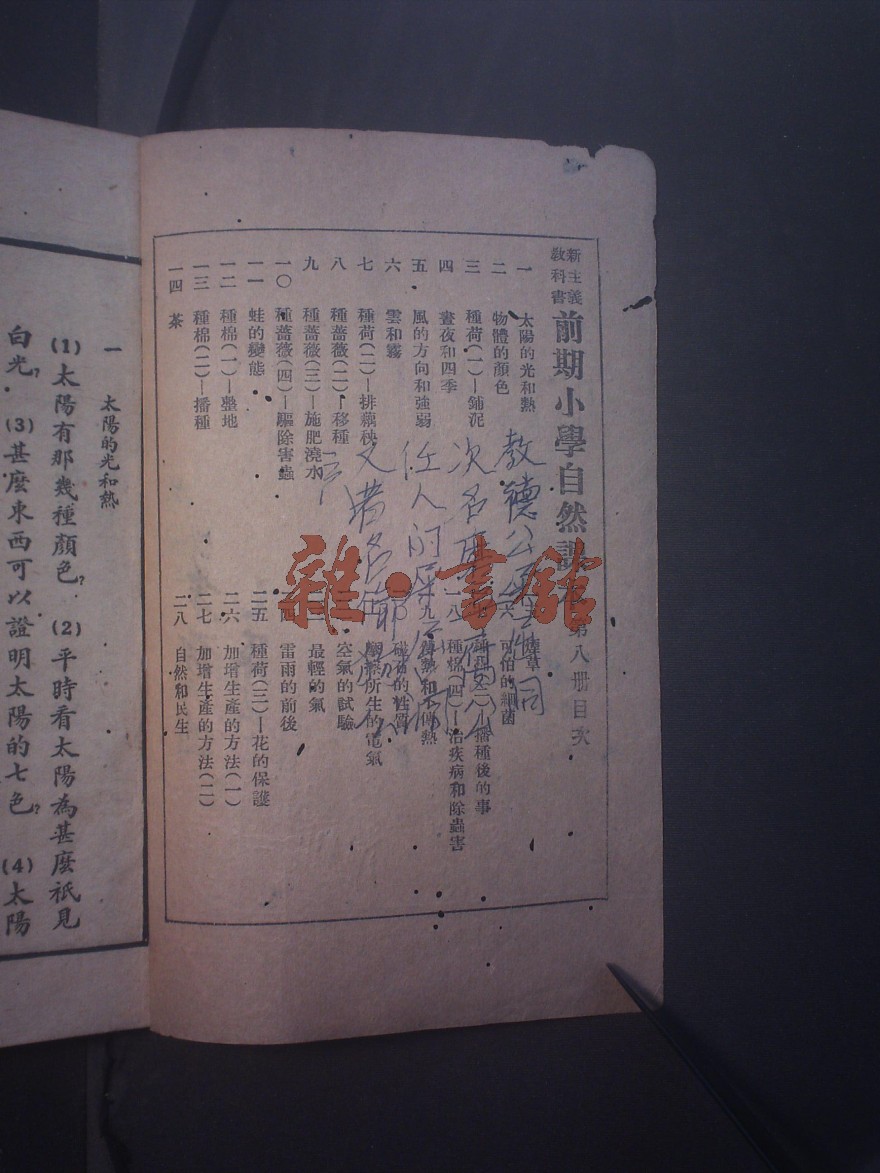 新主義教科書 前期小學自然課本 第八册目次
一 太陽的光和熱
二 物體的顏色
三 種荷(一)—鋪泥
四 晝夜和四季
五 風的方向和強弱
六 雲和霧
七 種荷(二)—排藕秧
八 種薔薇(二)—移種
九 種薔薇(三)—施肥澆水
一〇 種薔薇(四)—驅除害蟲
一一 蛙的變態
一二 種棉(一)—墾地
一三 種棉(二)—播種
一四 茶
煙草
可怕的細菌
播種後的事
一八 種棉(四)—治疾病和除蟲害
九 傳熱和不傳熱
磁石的性質
所生的電氣
空氣的試驗
最輕的氣
雷雨的前後
二五 種荷(三)—花的保護
二六 加增生產的方法(一)
二七 加增生產的方法(二)
二八 自然和民生
教德公
次名
任人的屎
又著名
雜·書館
一 太陽的光和熱
(1)太陽有那幾種顏色? (2)平時看太陽為甚麼祇見
白光? (3)甚麼東西可以證明太陽的七色? (4)太陽